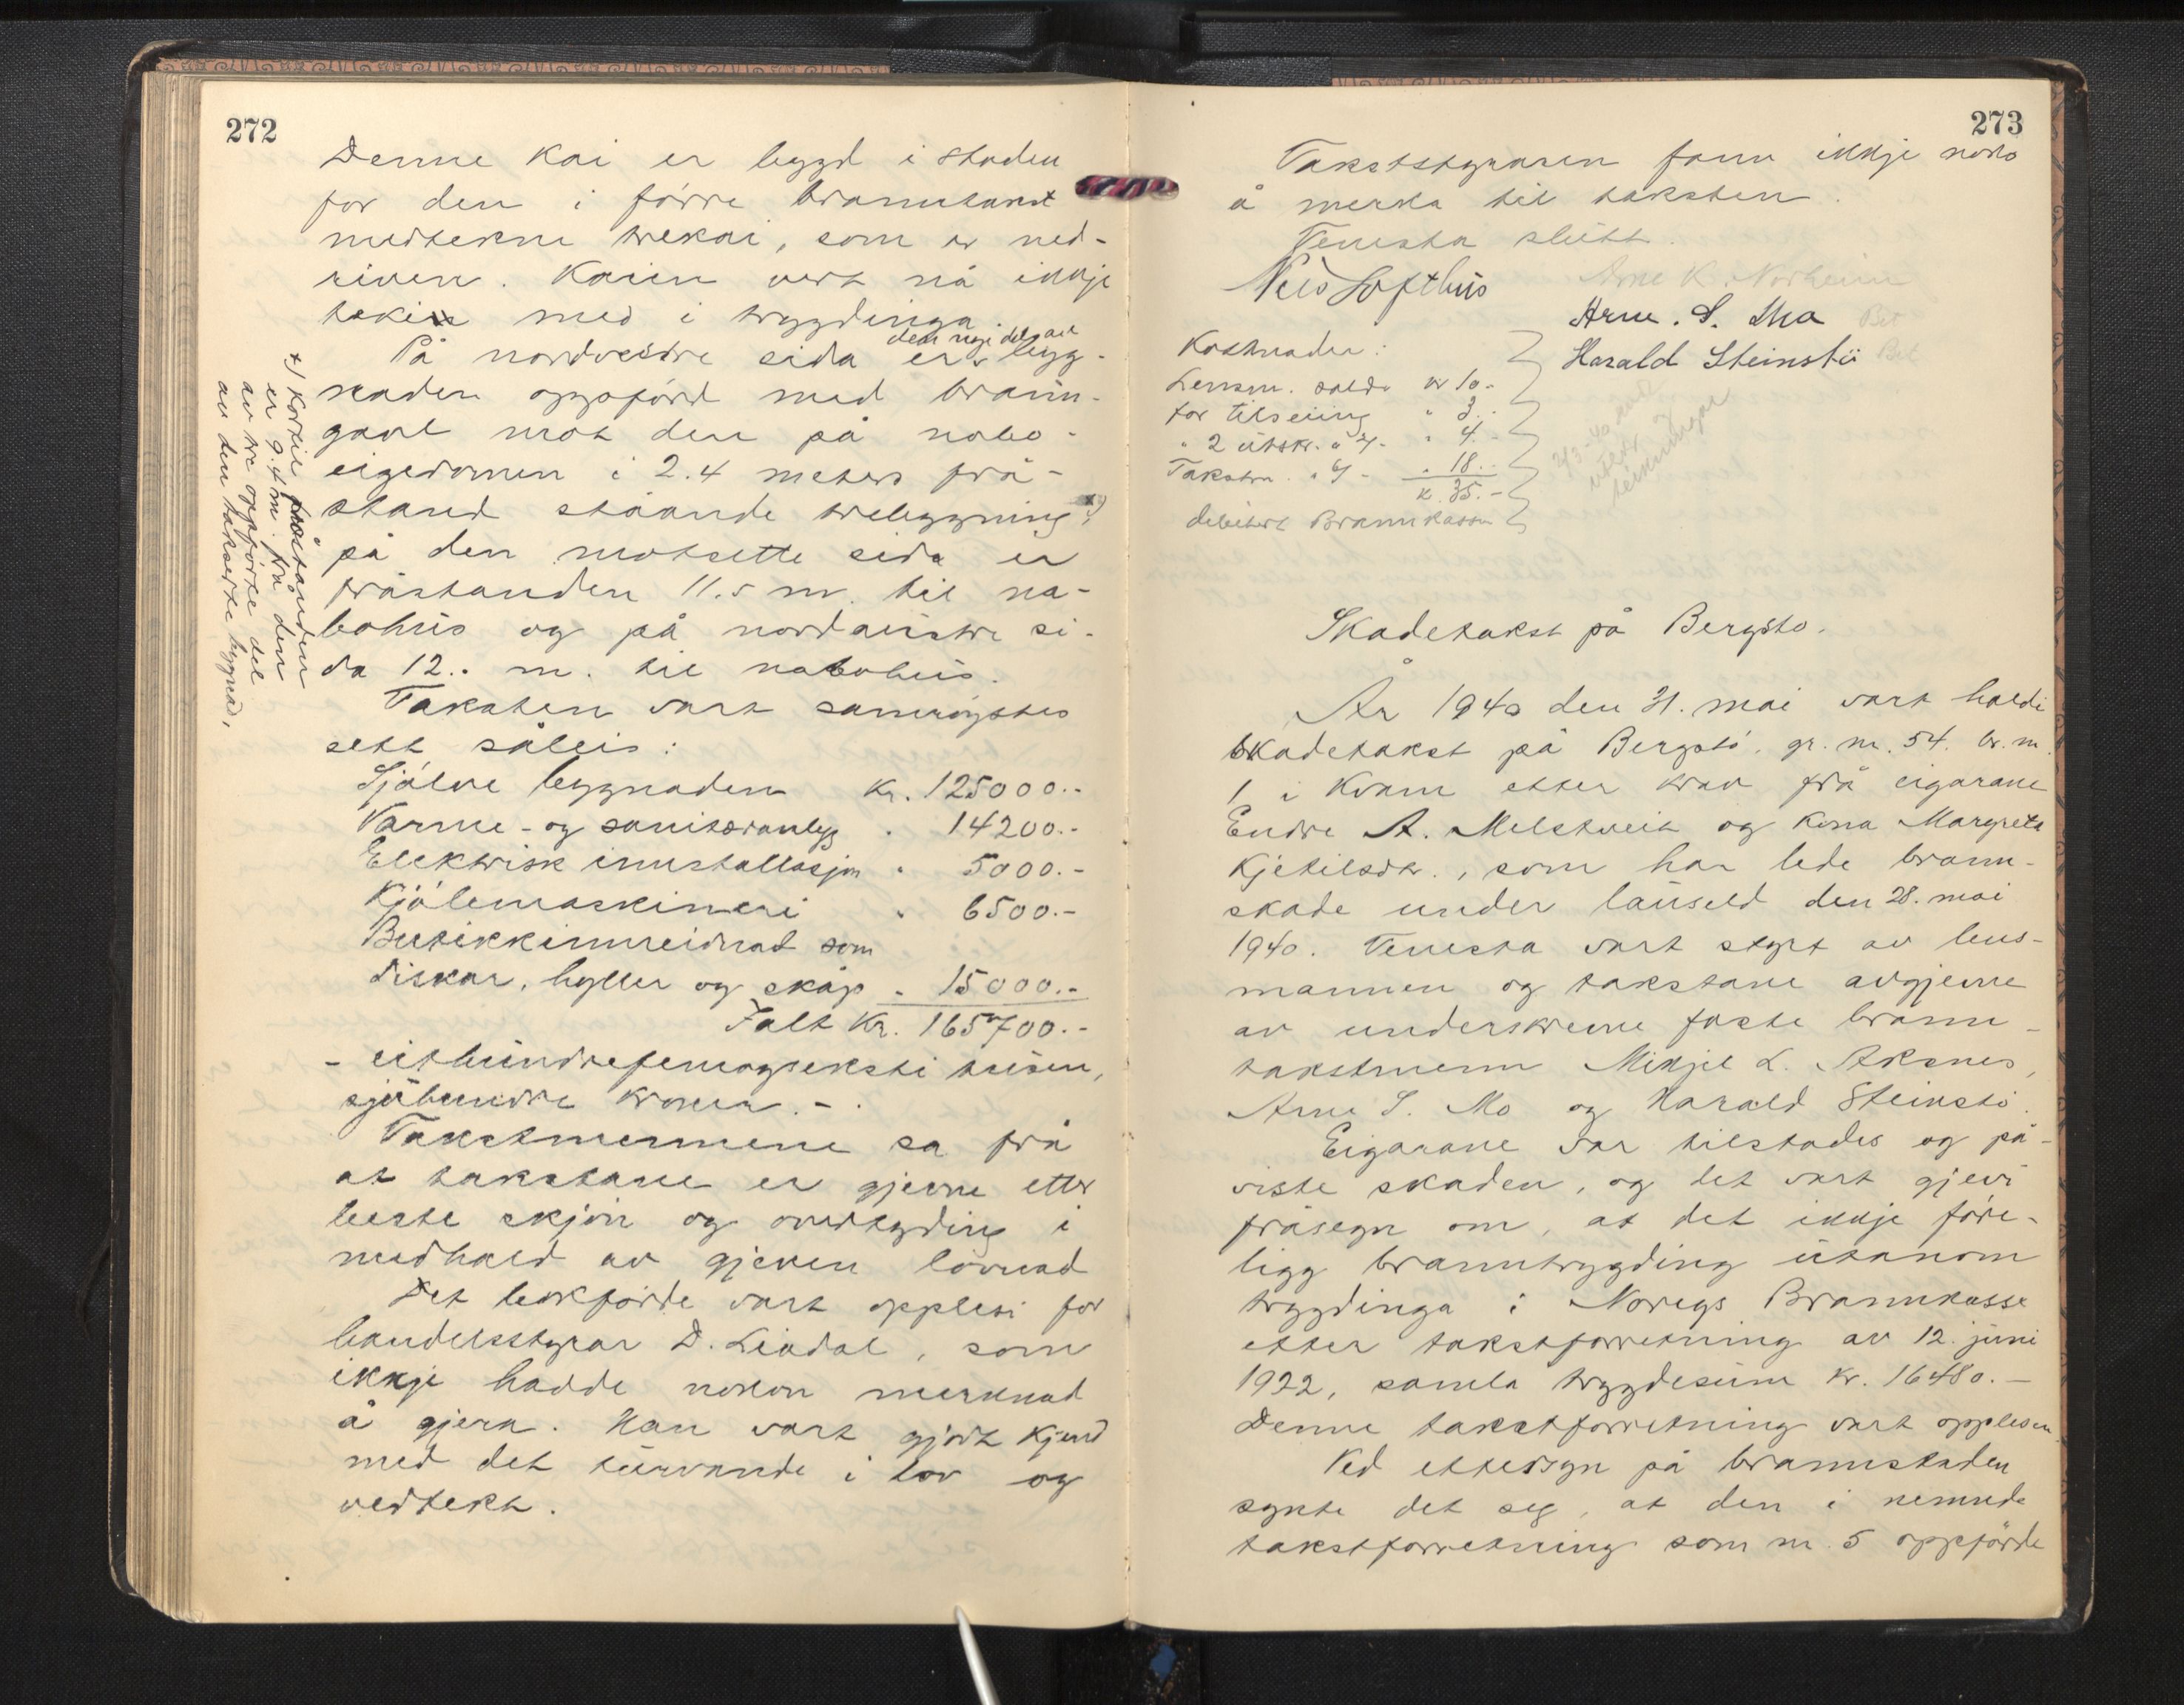 272
Denne kai er bygd i staden
for den i förre branntakst
medtekne trekai, som er ned-
riven. Kaien vert nå ikkje
teken med i trygdinga.
På nordvestre sida er den nye del av bygg-
naden oppförd med brann-
gavl mot den på nabo-
eigedomen i 2.4 meters frå-
stand ståande trebygning x)
på den motsette sida er
fråstanden 11.5 m. til na-
bohus og på nordaustre si-
da 12.. m. til nabohus.
Taksten vart samröystes
sett såleis:
Sjölve bygnaden Kr. 125000.-
Varme- og sanitæranlegg " 14200.-
Elektrisk innstallasjon " 5000.-
Kjölemaskineri " 6500.-
Butikkinnreidnad som
diskar, hyller og skåp " 15000.-
Ialt Kr. 165700.-
- eithundrefemogseksti tusen,
sjuhundre kroner.-
Takstmennene sa frå
at takstane er gjevne etter
beste skjön og overtyding i
medhald av gjeven lovnad
Det bokförde vart opplesi for
handelsstyrar D. Liadal, som
ikkje hadde nokon merknad
å gjera. Han vart gjort kjend
med det turvande i lov og
vedtekt.
x) fråstanden
er 9.4 m. frå den
av tre oppförte del
av den takserte bygnad,
273
Takststyraren fann ikkje noko
å merka til taksten.
Tenesta slutt.
Nils Lofthus Arne K. Norheim
Arne. S. Mo Bet
Harald Steinstö Bet
Kostnader:
Lensm. saldo kr 10.-
for tilseiing " 3.-
" 2 utskr. " 2/- " 4.-
Takstm. " 6/- " 18.-
K. 35.-
debitert Brannkassen
Skadetakst på Bergstö.
År 1940 den 31. mai vart haldi
skadetakst på Bergstö, gr. nr. 54. br. nr.
1 i Kvam etter krav frå eigarane
Endre A. Melstveit og kona Margreta
Kjetilsdtr., som har lide brann-
skade under lauseld den 28. mai
1940. Tenesta vart styrt av lens-
mannen og takstane avgjevne
av underskrevne faste brann-
takstmenn Mikjel L. Aksnes,
Arne S. Mo og Harald Steinstö.
Eigarane var tilstades og på-
viste skaden, og det vart gjevi
fråsegn om, at det ikkje före-
ligg branntrygding utanom
trygdinga i Noregs Brannkasse
etter takstforretning av 12. juni
1922, samla trygdesum kr. 16480.-
Denne takstforretning vart opplesen.
Ved ettersyn på brannstaden
synte det seg, at den i nemnde
takstforretning som nr. 5 oppförde